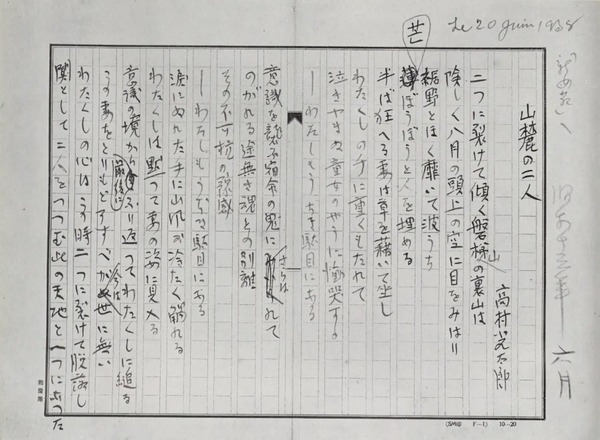 Le 20 juin 1938
「新女苑」へ 昭和十三年 六月
山麓の二人
高村光太郎
二つに裂けて傾く磐梯山の裏山は
険しく八月の頭上の空に目をみはり
裾野とほく靡いて波うち
芒ぼうぼうと人を埋める
半ば狂へる妻は草を藉いて坐し
わたくしの手に重くもたれて
泣きやまぬ童女のやうに慟哭する
――わたしもうぢき駄目になる
意識を襲ふ宿命の鬼にさらはれて
のがれる途無き魂との別離
その不可抗の予感
――わたしもうぢき駄目になる
涙にぬれた手に山風が冷たく触れる
わたくしは黙つて妻の姿に見入る
意識の境から最後にふり返つてわたくしに縋る
この妻をとりもどすすべが今は世に無い
わたくしの心はこの時二つに裂けて脱落し
闃として二人をつつむ此の天地と一つになつた
10-20